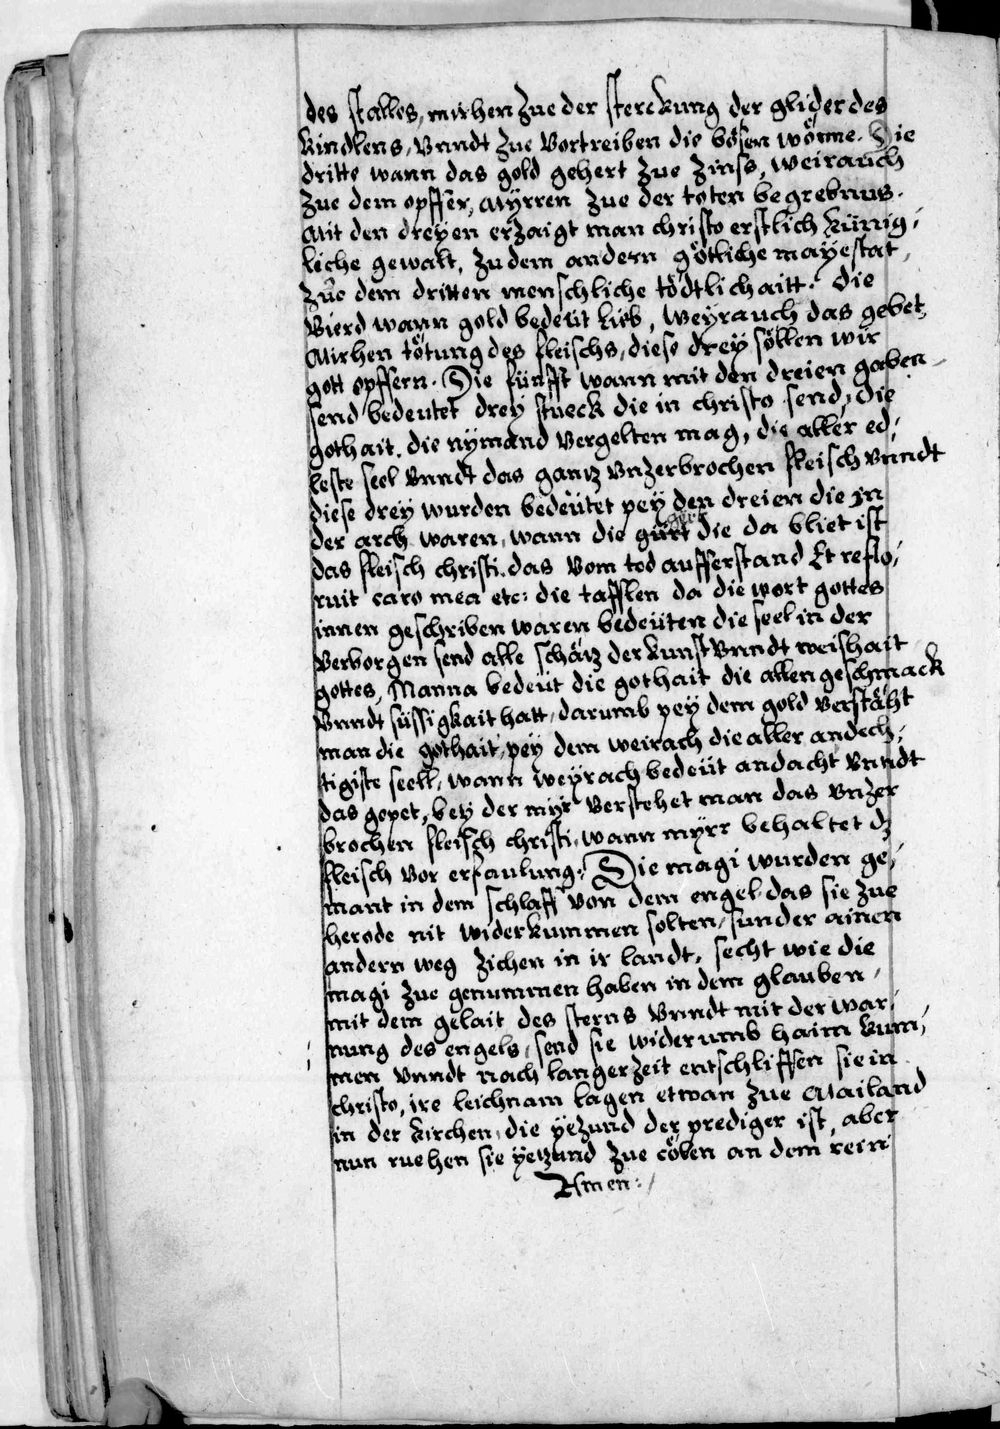 des stalles, mirhen zue der sterckung der glider des
kindlens, vnndt zue vertreiben die bösen wörme. Die
dritte wann das gold gehert zue zinss, weirauch
zue dem opffer, Myrren zue der toten begrebnus.
Mit den dreyen erzaigt man christo erstlich künig,
liche gewalt, zu dem andern göttliche mayestat,
zue dem dritten menschliche tödtlichaitt. Die
vierd wann gold bedeüt lieb, weyrauch das gebet,
Mirhen tötung des fleischs, diese drey söllen wir
gott opffern. Die fünfft wann mit den dreien gaben
send bedeutet drey stueck die in christo send, die
gothait. die nymand vergelten mag, die aller ed,
leste seel vnndt das gantz vnzerbrochen fleisch vnndt
diese drey wurden bedeütet pey den dreien die in
der arch waren, wann die gürt die da bliet ist
das fleisch christi. das vom tod aufferstand Et reflo,
ruit caro mea etc: die tafflen da die wort gottes
innen geschriben waren bedeüten die seel in der
verborgen send alle schätz der kunst vnndt weishait
gottes, Manna bedeüt die gothait die allen geschmack
vnndt süssigkait hatt, darumb pey dem gold verstäht
man die gothait, pey dem weirach die aller andech,
tigiste seell, wann weyrach bedeüt andacht vnndt
das gepet, bey der myr verstehet man das vnzer
brochen fleisch christi, wann myrr behaltet dz
fleisch vor erfaulung. Die magi wurden ge,
mant in dem schlaff von dem engel das sie zue
herode nit widerkummen solten, sunder ainen
andern weg zichen in ir landt, secht wie die
magi zue genummen haben in dem glauben,
mit dem gelait des sterns vnndt mit der war,
nung des engels, send sie widerumb haim kum,
men vnndt nach langer zeit entschliffen sie in
christo, ire leichnam lagen etwan zue Mailand
in der kirchen, die yezund der prediger ist, aber
nun ruehen sie yetzund zue cölen an dem rein
Amen:,